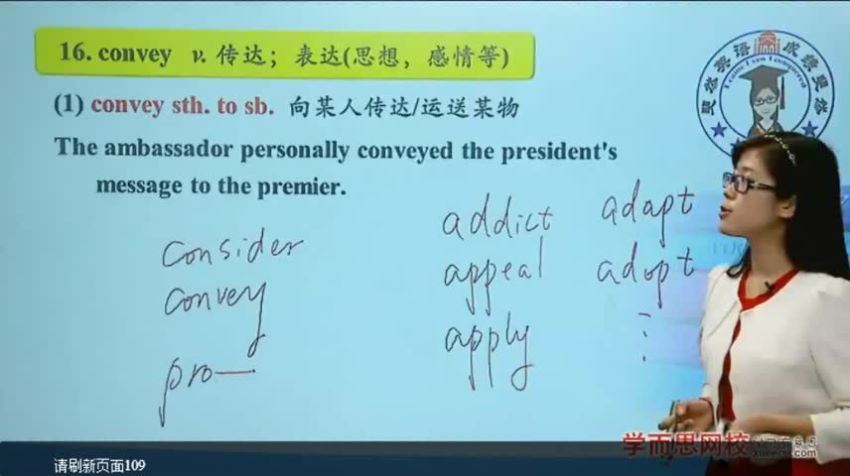 16. convey v. 传达；表达(思想，感情等)
(1) convey sth. to sb. 向某人传达/运送某物
The ambassador personally conveyed the president's
message to the premier.
consider
convey
pro—
addict adapt
appeal adopt
apply
学而思网校
请刷新页面109